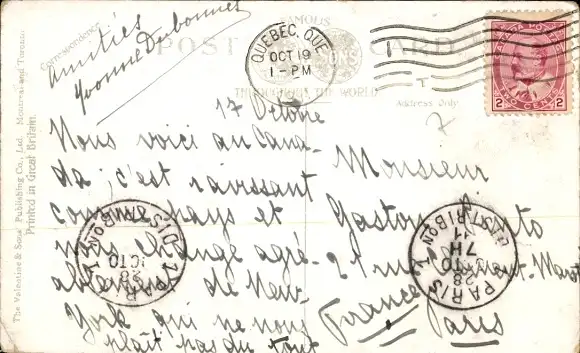 Correspondence
Amitiés
Yvonne Dubonnet
FAMOUS
POST CARD
THROUGHOUT THE WORLD
Address Only
QUEBEC, QUE
OCT 19
1-PM
CANADA POSTAGE
2 TWO CENTS 2
The Valentine & Sons' Publishing Co., Ltd. Montreal and Toronto.
Printed in Great Britain.
17 Octobre
Nous voici au Cana-
da, c'est ravissant
comme pays et
nous change agré-
ablement de New-
York qui ne nous
plaît pas du tout
Monsieur
Gaston
21 rue
France
Paris
PARIS
DISTRIBUTION
28
PARIS
DISTRIBUTION
7H
28